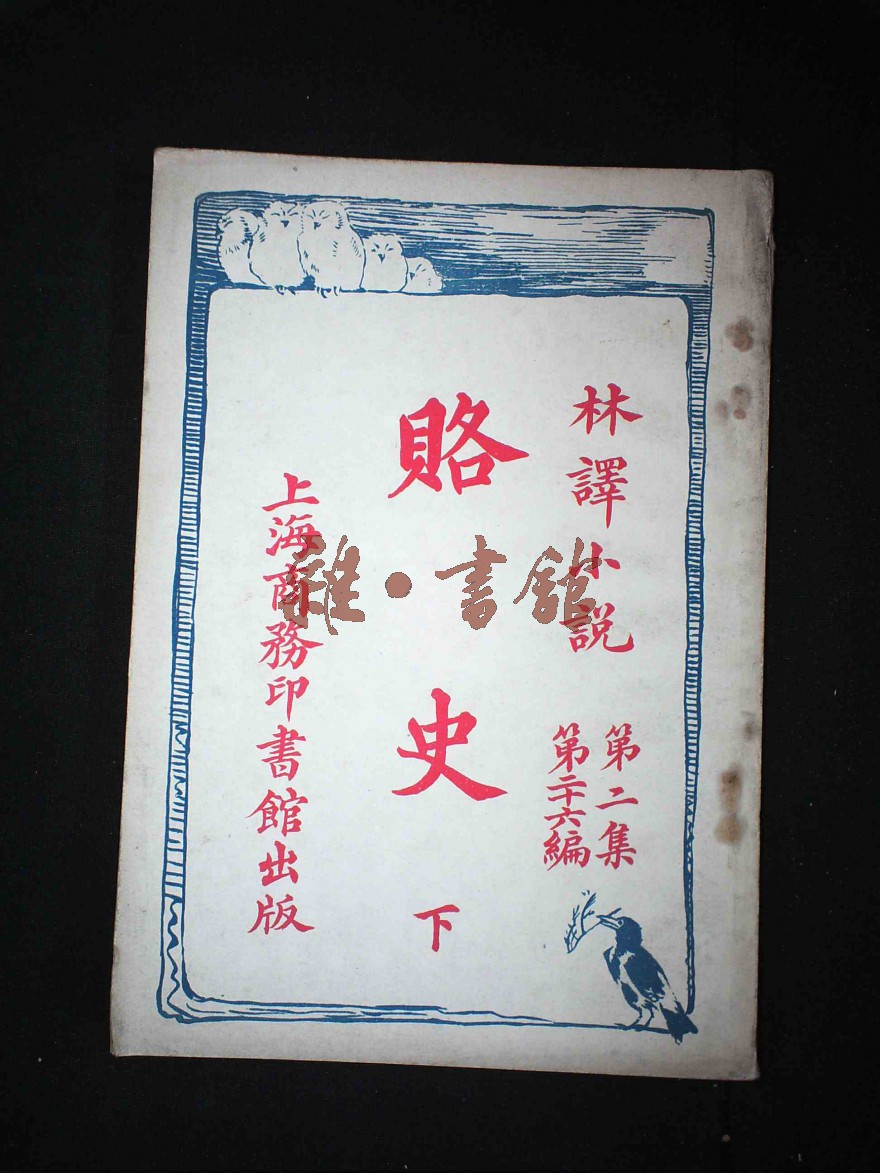 林譯小説
第二集
第二十六編
賂史
下
上海商務印書館出版
雜·書館